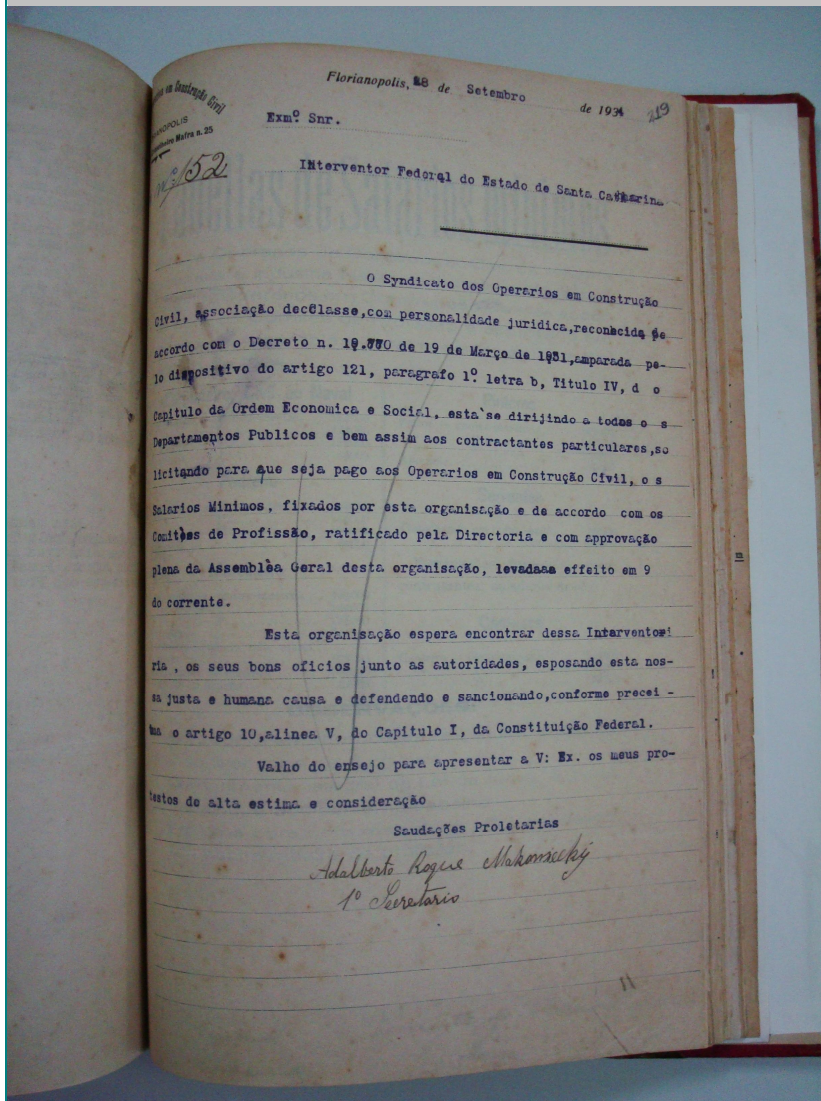 em Construcção Civil
Florianopolis, 28 de Setembro de 1934 219
Mafra n. 25
Exmº. Snr.
152
Interventor Federal do Estado de Santa Catharina
O Syndicato dos Operarios em Construcção
Civil, associação declasse,com personalidade juridica,reconhecida de
accordo com o Decreto n. 19.770 de 19 de Março de 1931,amparada pe-
lo dispositivo do artigo 121, paragrafo 1º. letra b, Titulo IV, d o
Capitulo da Ordem Economica e Social, esta'se dirijindo a todos o s
Departamentos Publicos e bem assim aos contractantes particulares,so
licitando para que seja pago aos Operarios em Construcção Civil, o s
Salarios Minimos, fixados por esta organisação e de accordo com os
Comitêes de Profissão, ratificado pela Directoria e com approvação
plena da Assemblèa Geral desta organisação, levadaaa effeito em 9
do corrente.
Esta organisação espera encontrar dessa Interventori
ria , os seus bons oficios junto as autoridades, esposando esta nos-
sa justa e humana causa e defendendo e sancionando,conforme precei -
tua o artigo 10,alinea V, do Capitulo I, da Constituição Federal.
Valho do ensejo para apresentar a V: Ex. os meus pro-
testos de alta estima e consideração
Saudações Proletarias
Adalberto Roque Makowiecky
1º Secretario
11